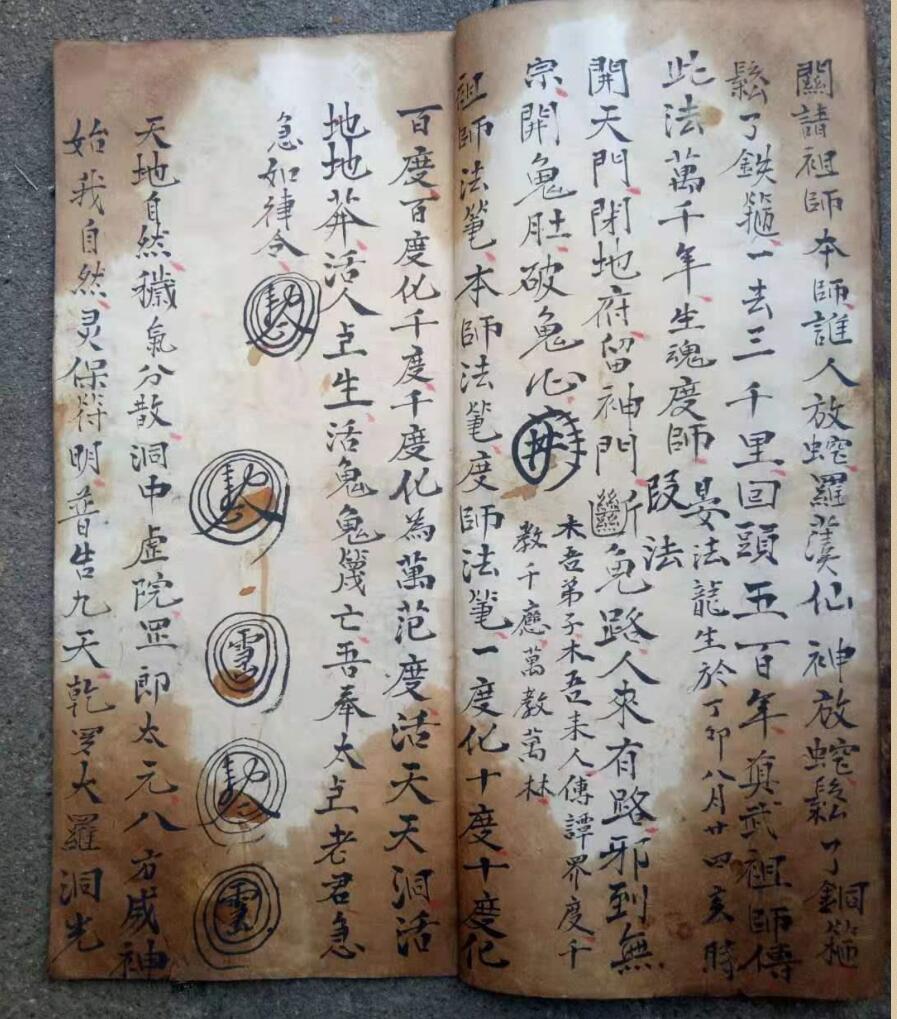 關請祖師本師誰人放蛇羅漢仙神放蛇鬆了銅箍
鬆了鉄箍一去三千里回頭五百年真武祖師傳
此法萬千年生魂度師
晏法龍生於丁卯八月廿四亥時
段法
開天門閉地府留神門斷鬼路人來有路邪到無
宗開鬼肚破鬼心
木吾弟子木吾未人傳譚界度千
教千應萬教萬林
祖師法篆本師法篆度師法篆一度化十度十度化
百度百度化千度千度化為萬范度活天天洞活
地地莽活人上生活鬼鬼篾亡吾奉太上老君急
急如律令
天地自然穢氣分散洞中虛院罡郎太元八方威神
始我自然灵保符明普告九天乾罗大羅洞光